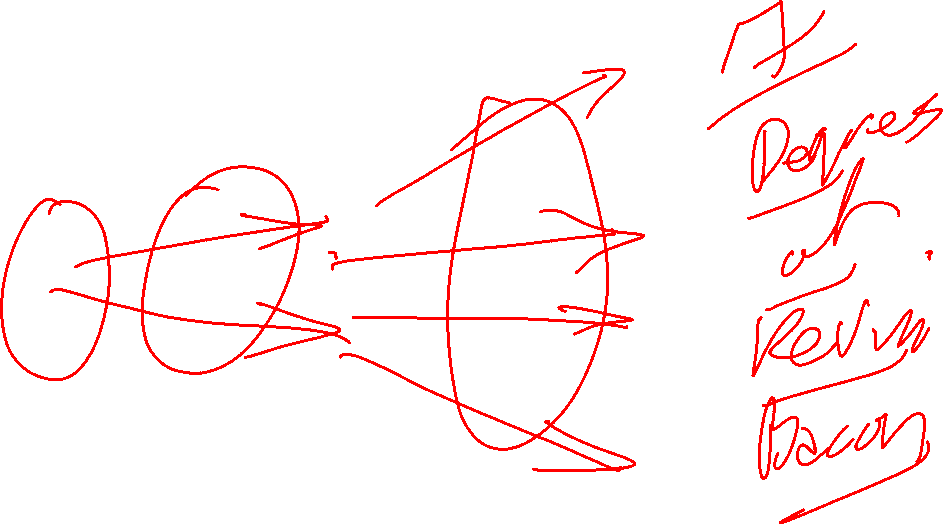 7
Degrees
of
Kevin
Bacon